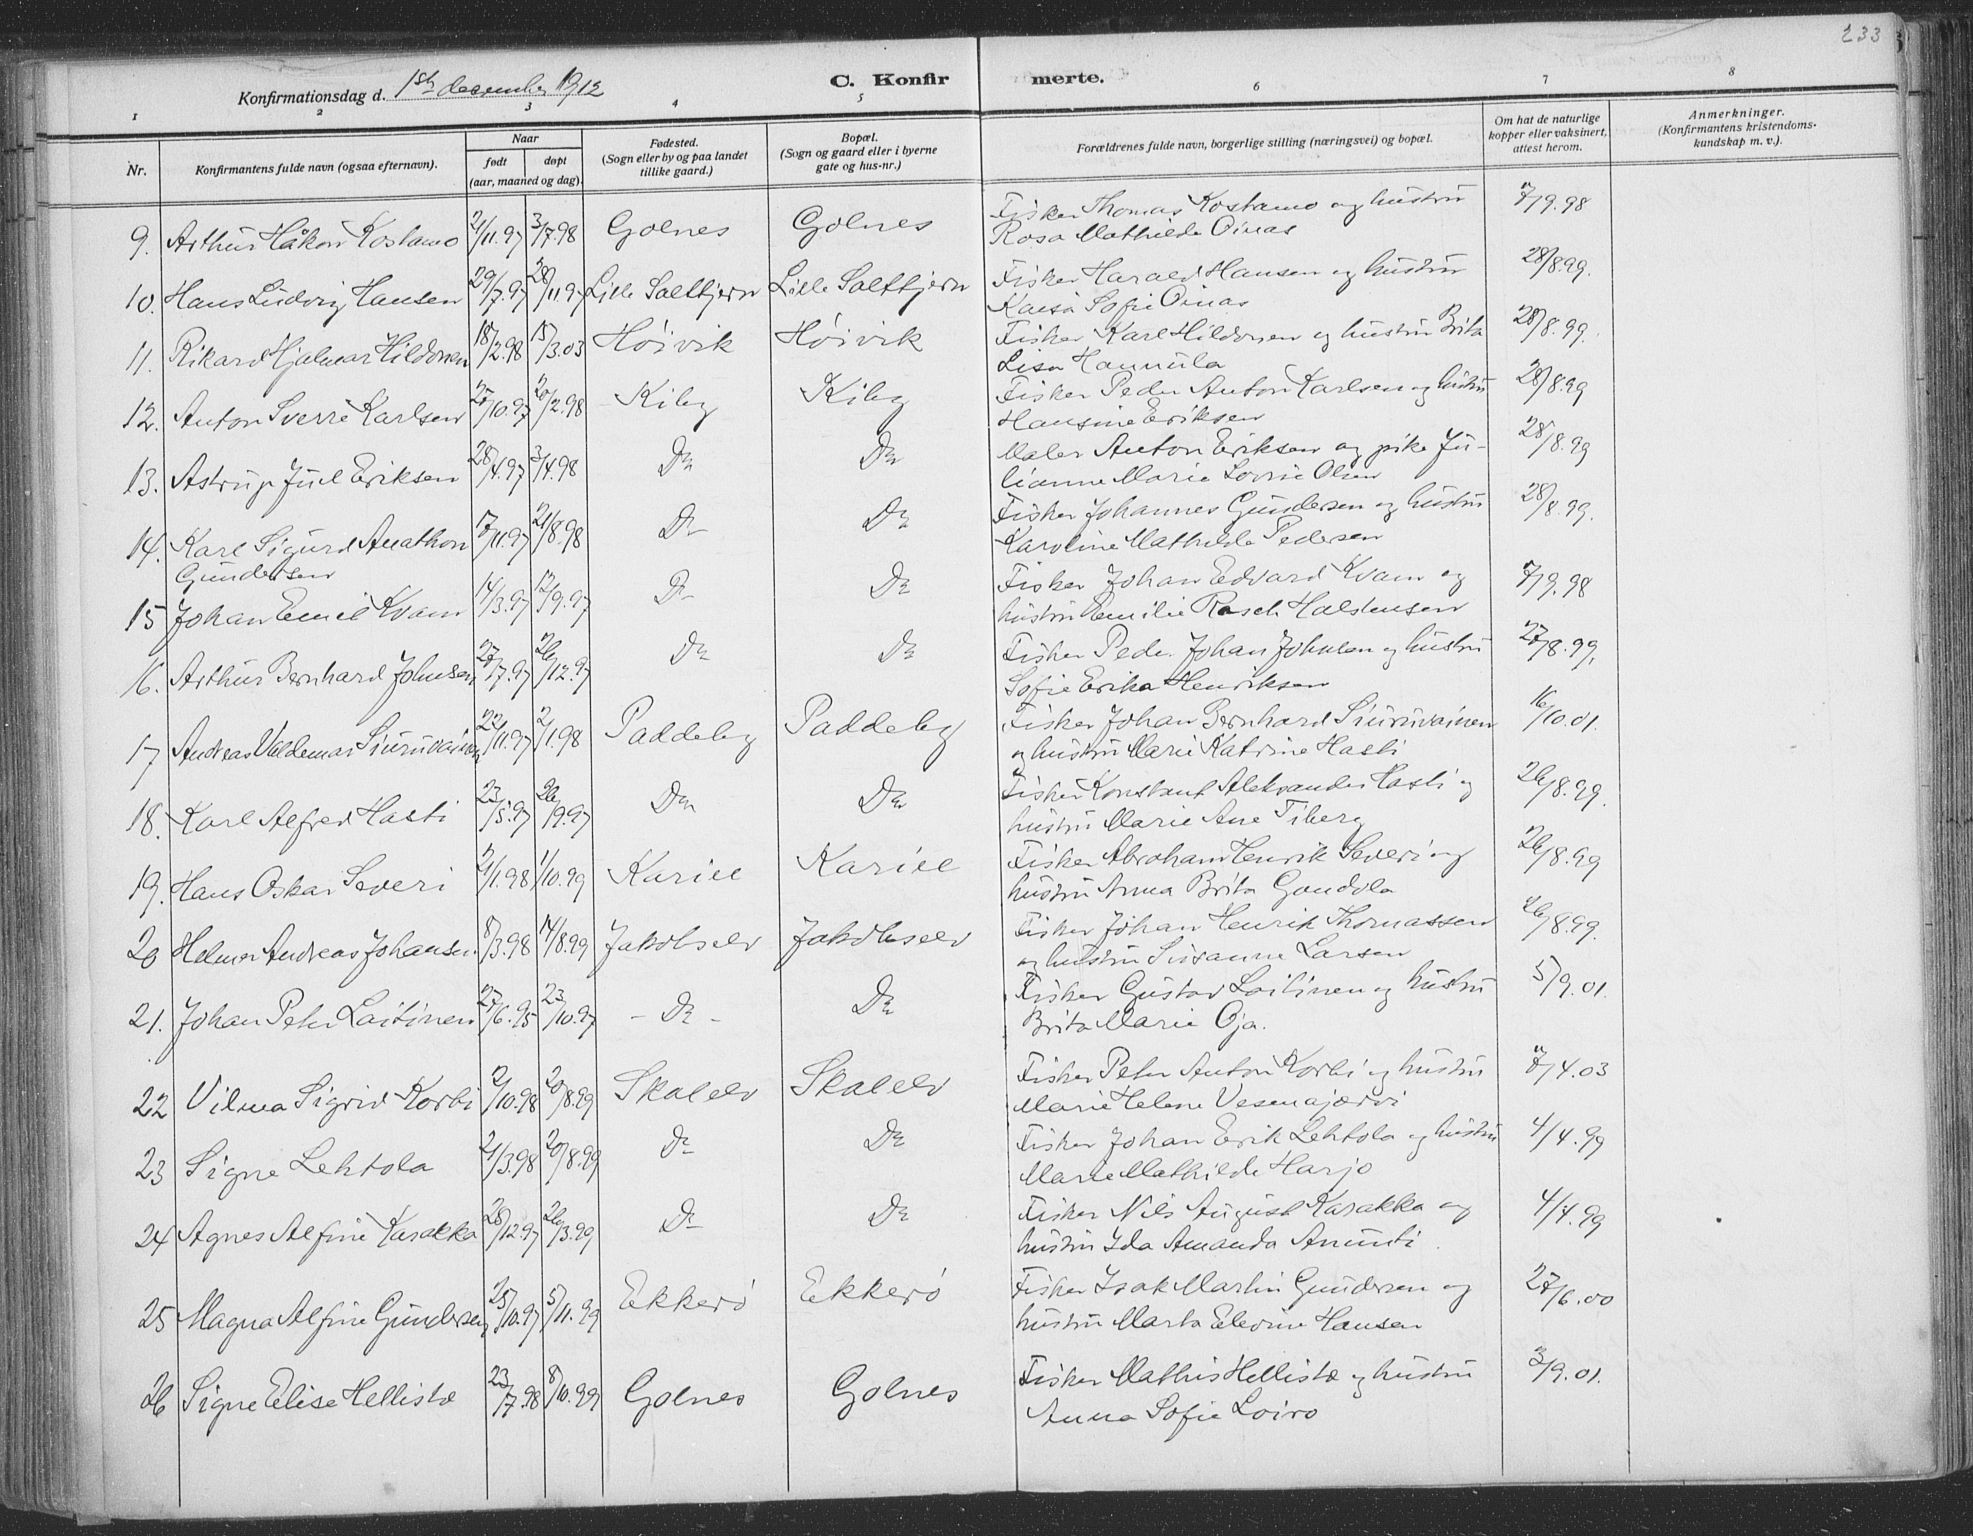 233
Konfirmationsdag d. 1ste december 1912 C. Konfirmerte.
1 2 3 4 5 6 7 8
Nr. Konfirmantens fulde navn (ogsaa efternavn). Naar født døpt (aar, maaned og dag). Fødested. (Sogn eller by og paa landet tillike gaard.) Bopæl. (Sogn og gaard eller i byerne gate og hus-nr.) Forældrenes fulde navn, borgerlige stilling (næringsvei) og bopæl. Om hat de naturlige kopper eller vaksinert, attest herom. Anmerkninger. (Konfirmantens kristendoms-kundskap m. v.).
9. Arthur Håkon Kostamo 2/11.97 3/7.98 Golnes Golnes Fisker Thomas Kostamo og hustru 7/9.98
Rosa Mathilde Oinas
10. Hans Ludvig Hansen 29/7.97 28/11.97 Lille Saltbjern Lille Saltbjern Fisker Harald Hansen og hustru 28/8.99.
Kaisa Sofie Oinas
11. Rikard Hjalmar Hildonen 18/2.98 15/3.03 Høivik Høivik Fisker Karl Hildonen og hustru Brita 28/8.99.
Lisa Hannula
12. Anton Sverre Karlsen 25/10.97 20/2.98 Kiby Kiby Fisker Peder Anton Karlsen og hustru 28/8.99
Hansine Eriksen
13. Astrup Juel Eriksen 28/4.97 3/4.98 Do Do Maler Anton Eriksen og pike Ju- 28/8.99
lianne Marie Lovise Olsen
14. Karl Sigurd Anathon 17/11.97 21/8.98 Do Do Fisker Johannes Gundersen og hustru 28/8.99.
Gundersen Karoline Mathilde Pedersen
15 Johan Emil Kvam 14/3.97 12/9.97 Do Do Fisker Johan Edvard Kvam og 7/9.98
hustru Emilie Rasch Halstensen
16. Arthur Bernhard Johnsen 27/7.97 26/12.97 Do Do Fisker Peder Johan Johnsen og hustru 27/8.99.
Sofie Erika Henriksen
17 Andreas Valdemar Siuruvainen 22/11.97 2/1.98 Paddeby Paddeby Fisker Johan Bernhard Siuruvainen 16/10.01.
og hustru Marie Katrine Hasti
18. Karl Alfred Hasti 23/5.97 26/9.97 Do Do Fisker Konstant Aleksander Hasti og 26/8.99.
hustru Marie Ane Tiberg
19. Hans Oskar Severi 21/1.98 1/10.99 Kariel Kariel Fisker Abraham Henrik Severi og 26/8.99
hustru Anna Brita Gandola
20 Helmer Andreas Johansen 8/3.98 14/8.99 Jakobselv Jakobselv Fisker Johan Henrik Thomassen 26/8.99.
og hustru Susanne Larsen
21. Johan Peter Laitinen 27/6.95 23/10.97 - Do - Do Fisker Gustav Laitinen og hustru 5/9.01.
Brita Marie Oja.
22 Vilma Sigrid Korbi 2/10.98 20/8.99 Skalelv Skalelv Fisker Peter Anton Korbi og hustru 7/4.03
Marie Helene Vesenajærvi
23 Signe Lehtola 21/3.98 20/8.99 Do Do Fisker Johan Erik Lehtola og hustru 4/4.99
Marie Mathilde Harjo
24 Agnes Alfine Karakka 28/12.97 26/3.99 Do Do Fisker Nils August Karakka og 4/4.99
hustru Ida Amanda Anunti.
25 Magna Alfine Gundersen 25/10.97 5/11.99 Ekkerö Ekkerö Fisker Isak Martin Gundersen og 27/6.00
hustru Marta Elevine Hansen
26 Signe Elise Hellistæ 23/7.98 8/10.99 Golnes Golnes Fisker Mathis Hellistæ og hustru 3/9.01.
Anna Sofie Loiro